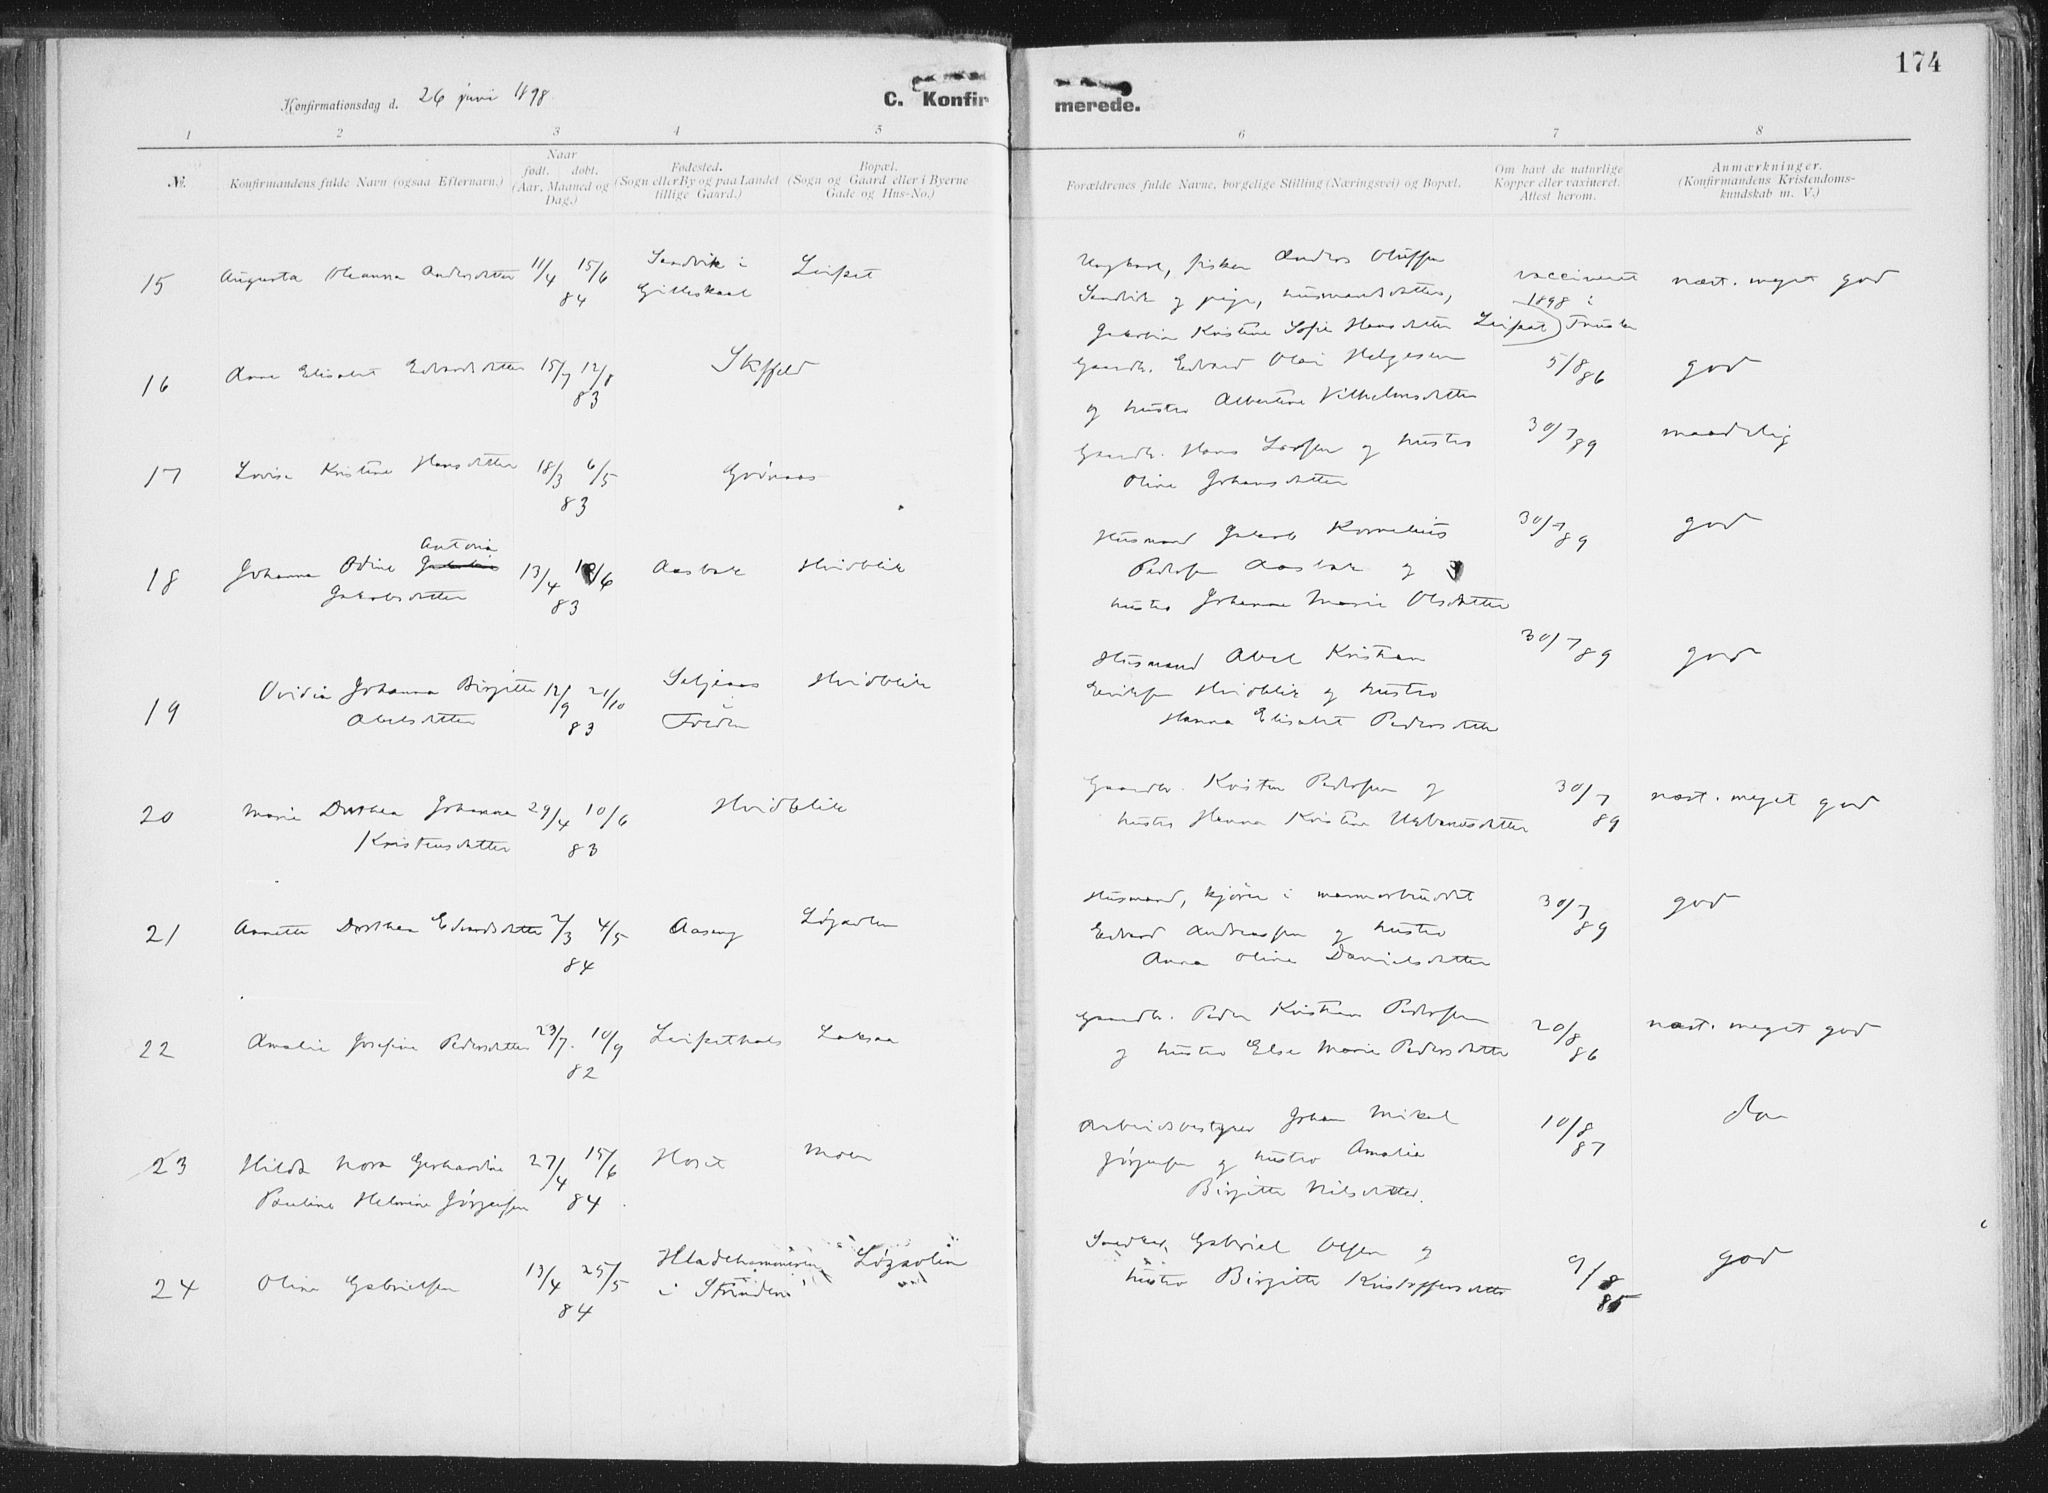 174
Konfirmationsdag d. 26 juni 1898.
C. Konfirmerede.
1 2 3 4 5 6 7 8
No.
Konfirmandens fulde Navn (ogsaa Efternavn.)
Naar
født. døbt.
(Aar, Maaned og
Dag.)
Fødested.
(Sogn eller By og paa Landet
tillige Gaard.)
Bopæl.
(Sogn og Gaard eller i Byerne
Gade og Hus-No.)
Forældrenes fulde Navne, borgelige Stilling (Næringsvei) og Bopæl.
Om havt de naturlige
Kopper eller vaxineret.
Attest herom.
Anmærkninger.
(Konfirmandens Kristendoms-
kundskab m. V.)
15 Augusta Oleanna Andersdatter 11/4 15/6 84
Sandvik i
Gilleskaal
Leifset
Ungkarl, fisker Andres Oluffsen
Sandvik og pige, husmandsdatter,
Jakobia Kristine Sofie Hansdatter Leifset
vaccineret
1898 i
næst. meget god
16 Anne Elisabet Edvardsdatter 15/7 12/8 83
Gaardbr. Edvard Olai Helgesen
og hustru Albertine Vilhelmsdatter
5/8 86
god
17 Lovise Kristine Hansdatter 18/3 6/5 83
Gaardbr. Hans Larsen og hustru
Oline Johansdatter
30/7 89
maadelig
18 Johanna Odine Antonia
Jakobsdatter
13/4 /6 83
Aasbak Hvidblik
Husmand Jakob Kornelius
Pedersen Aasbak og
hustru Johanna Marie Olsdatter
30/7 89
god
19 Ovidia Johanna Birgitte
Abelsdatter
12/9 21/10 83
Seljeaas
i
Hvidblik
Husmand Abel Kristian
Eriksen Hvidblik og hustru
Hanna Elisabet Pedersdatter
30/7 89
god
20 Marie Dorthea Johanna
Kristensdatter
29/4 10/6 83
Hvidblik
Gaardbr. Kristen Pedersen og
hustru Hanna Kristine Urbanusdatter
30/7 89
næst. meget god
21 Annette Dorthea Edvardsdatter 2/3 4/5 84
Aaseng Løgavlen
Husmand, kjører i marmorbruddet
Edvard Andreassen og hustru
Anna Oline Danielsdatter
30/7 89
god
22 Amalie Josefine Pedersdatter 23/7 10/9 82
Leifsethals Laksaa
Gaardbr. Peder Kristian Pedersen
og hustru Else Marie Pedersdatter
20/8 86
næst. meget god
23 Hilda Nora Gerhardine
Pauline Helmine Jørgensen
27/4 15/6 84
Hoset Moen
Arbeidsbestyrer Johan Mikal
Jørgensen og hustru Amalie
Birgitte Nilsdatter.
10/8 87
do
24 Oline Gabrielsen 13/4 25/5 84
Hladehammeren
i Strinden
Løgavlen
Snedker Gabriel Olsen og
hustru Birgitte Kristoffersdatter
9/8 85
god